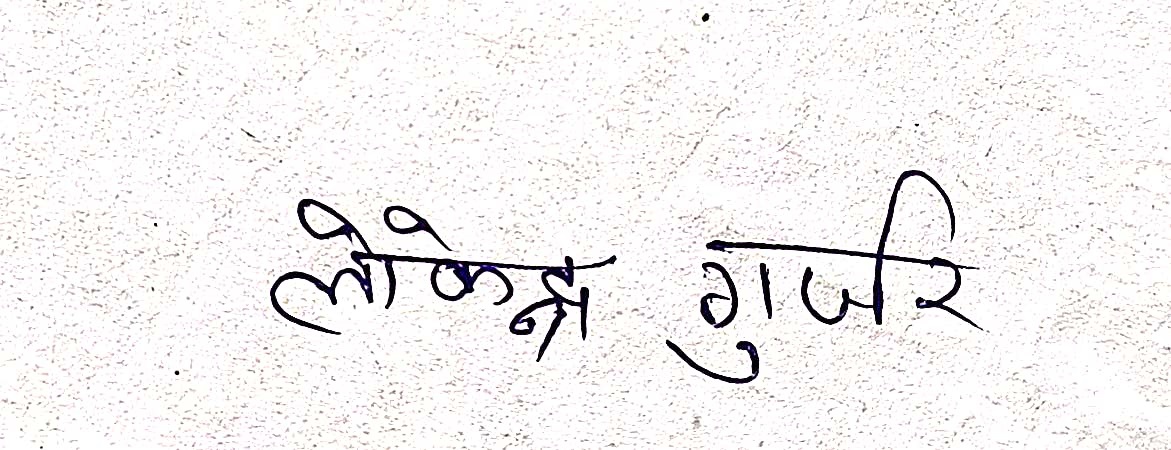 लोकेश गुर्जर